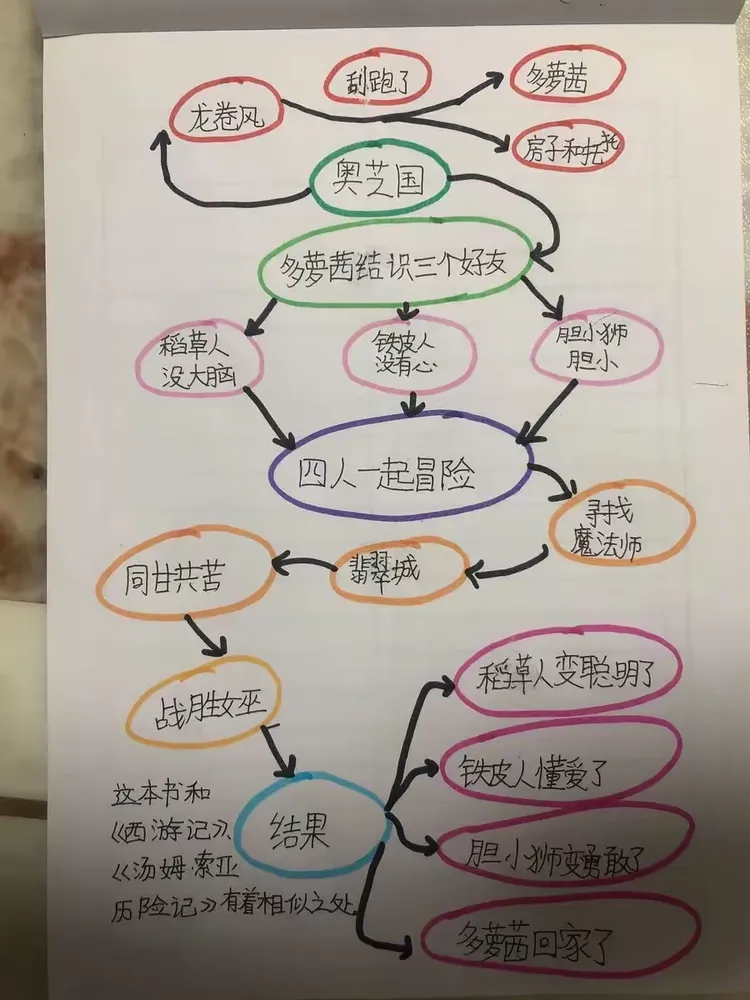 刮跑了
多萝茜
龙卷风
房子和托托
奥芝国
多萝茜结识三个好友
稻草人
没大脑
铁皮人
没有心
胆小狮
胆小
四人一起冒险
寻找
魔法师
翡翠城
同甘共苦
战胜女巫
稻草人变聪明了
铁皮人懂爱了
结果
胆小狮变勇敢了
多萝茜回家了
这本书和
《西游记》、
《汤姆·索亚
历险记》有着相似之处